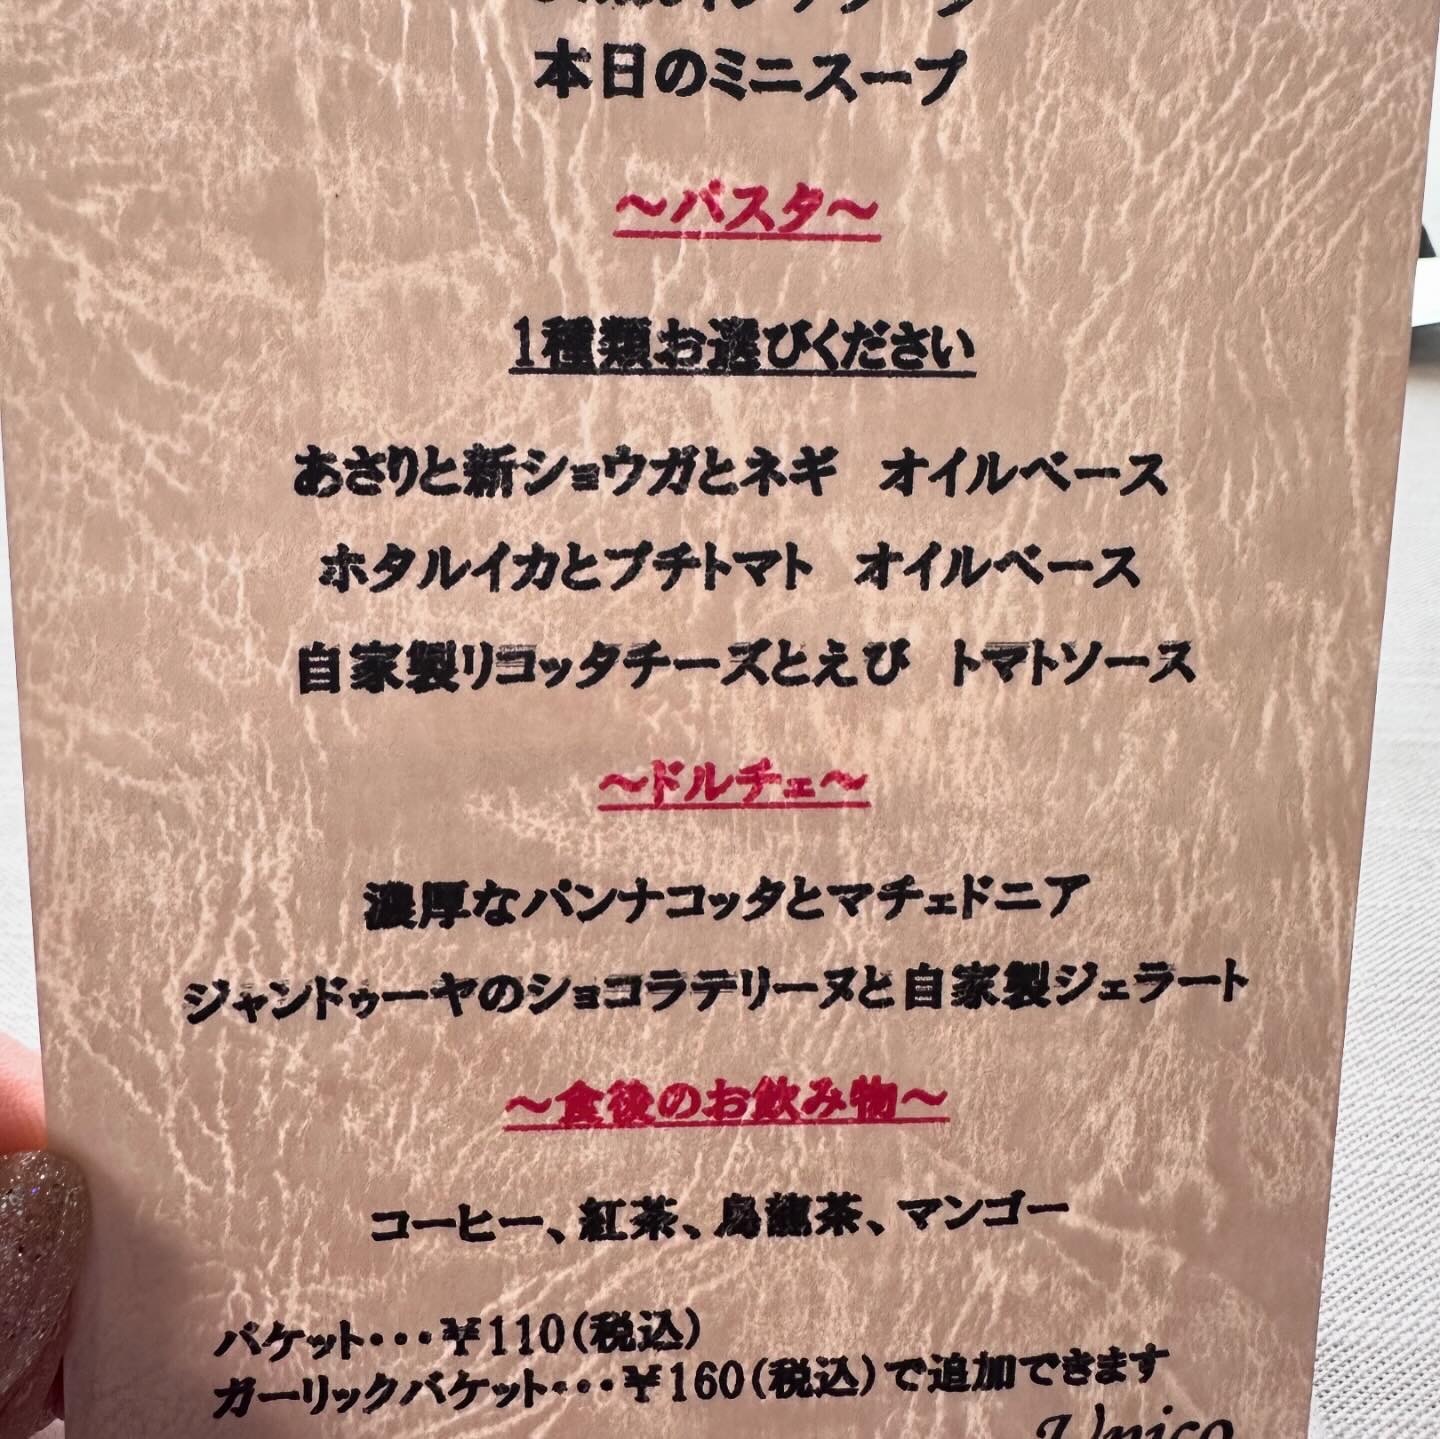 本日のミニスープ
～パスタ～
1種類お選びください
あさりと新ショウガとネギ　オイルベース
ホタルイカとプチトマト　オイルベース
自家製リコッタチーズとえび　トマトソース
～ドルチェ～
濃厚なパンナコッタとマチェドニア
ジャンドゥーヤのショコラテリーヌと自家製ジェラート
～食後のお飲み物～
コーヒー、紅茶、烏龍茶、マンゴー
バケット・・・￥110(税込)
ガーリックバケット・・・￥160(税込)で追加できます
Unico